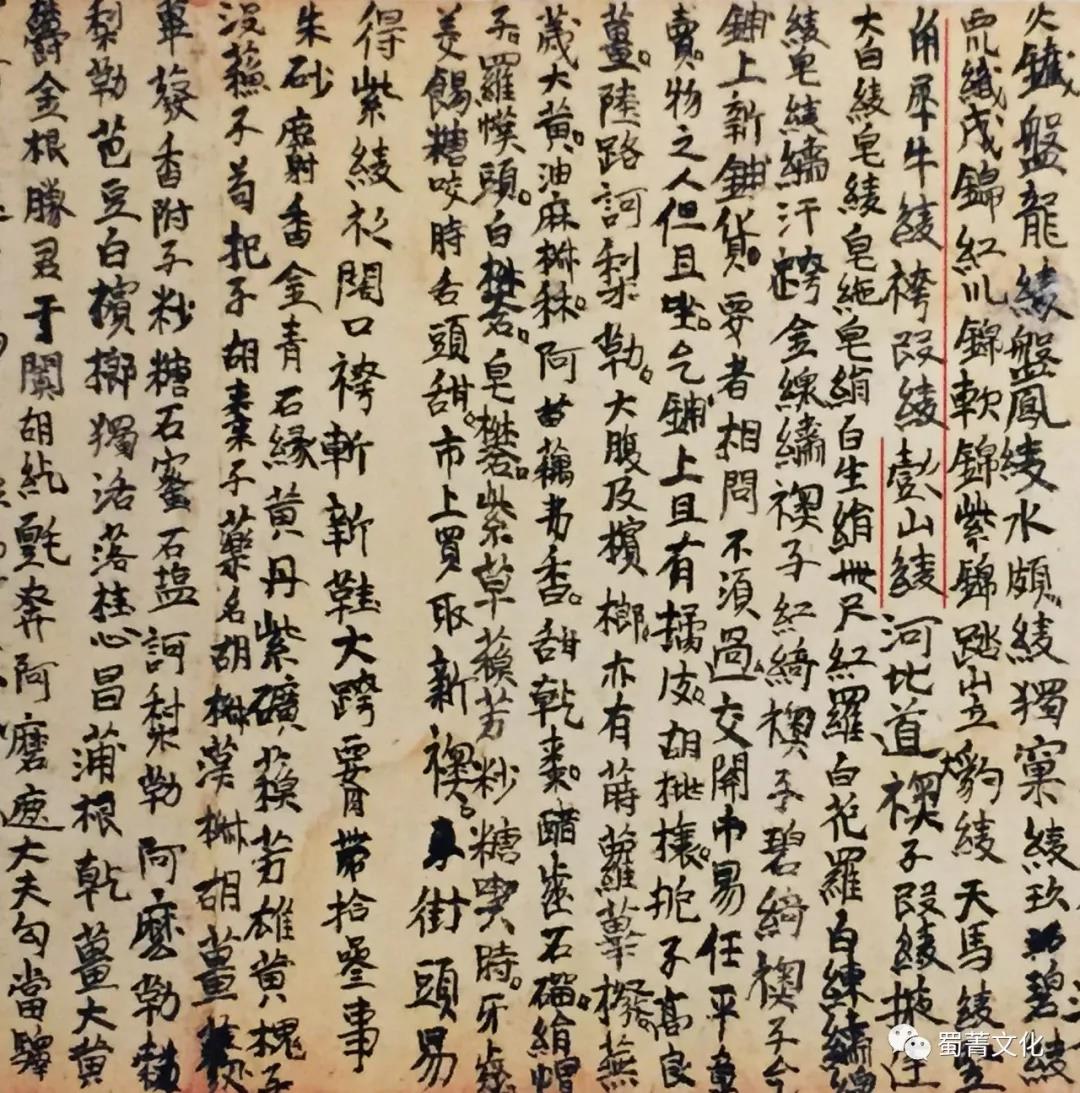 火鐵盤龍綾盤鳳綾水頗綾獨窠綾玖碧綾
罽纖成錦紅川錦軟錦紫錦踏豹綾天馬綾
角犀牛綾袴段綾彭山綾河北道襖子段綾掖
大白綾皂綾皂絁皂絹白生絹卌尺紅羅白花羅白練繡
綾皂綾繡汗袴金線繡襖子紅綺襖子碧綺襖子
鋪上新鋪貨要者相問不須過交關市易任平章
賣物之人但且坐乞鋪上且有橘皮胡桃穰梔子高良
薑陸路訶梨勒大腹及檳榔亦有蒔蘿蓽撥蕪
荑大黃油麻椒秣阿苗藕弗香甜乾棗醋齒石榴絹帽
子羅幞頭白礬皂礬紫草蘇芳粆糖喫時牙齒
美餳糖咬時舌頭甜市上買取新襖街頭易
得紫綾衫闊口袴斬新鞋大跨腰帶拾叄事
朱砂麝香金青石綠黃丹紫礦蘇芳雄黃槐子
沒蘇子苟杞子胡棗子藥名胡椒漢椒胡薑
蓽發香附子粆糖石蜜石鹽訶梨勒阿磨勒
梨勒芭豆白檳榔獨活落桂心昌蒲根乾薑大黃
鬱金根勝君于闐胡紕氈奔阿磨大夫勾當驛
蜀菁文化